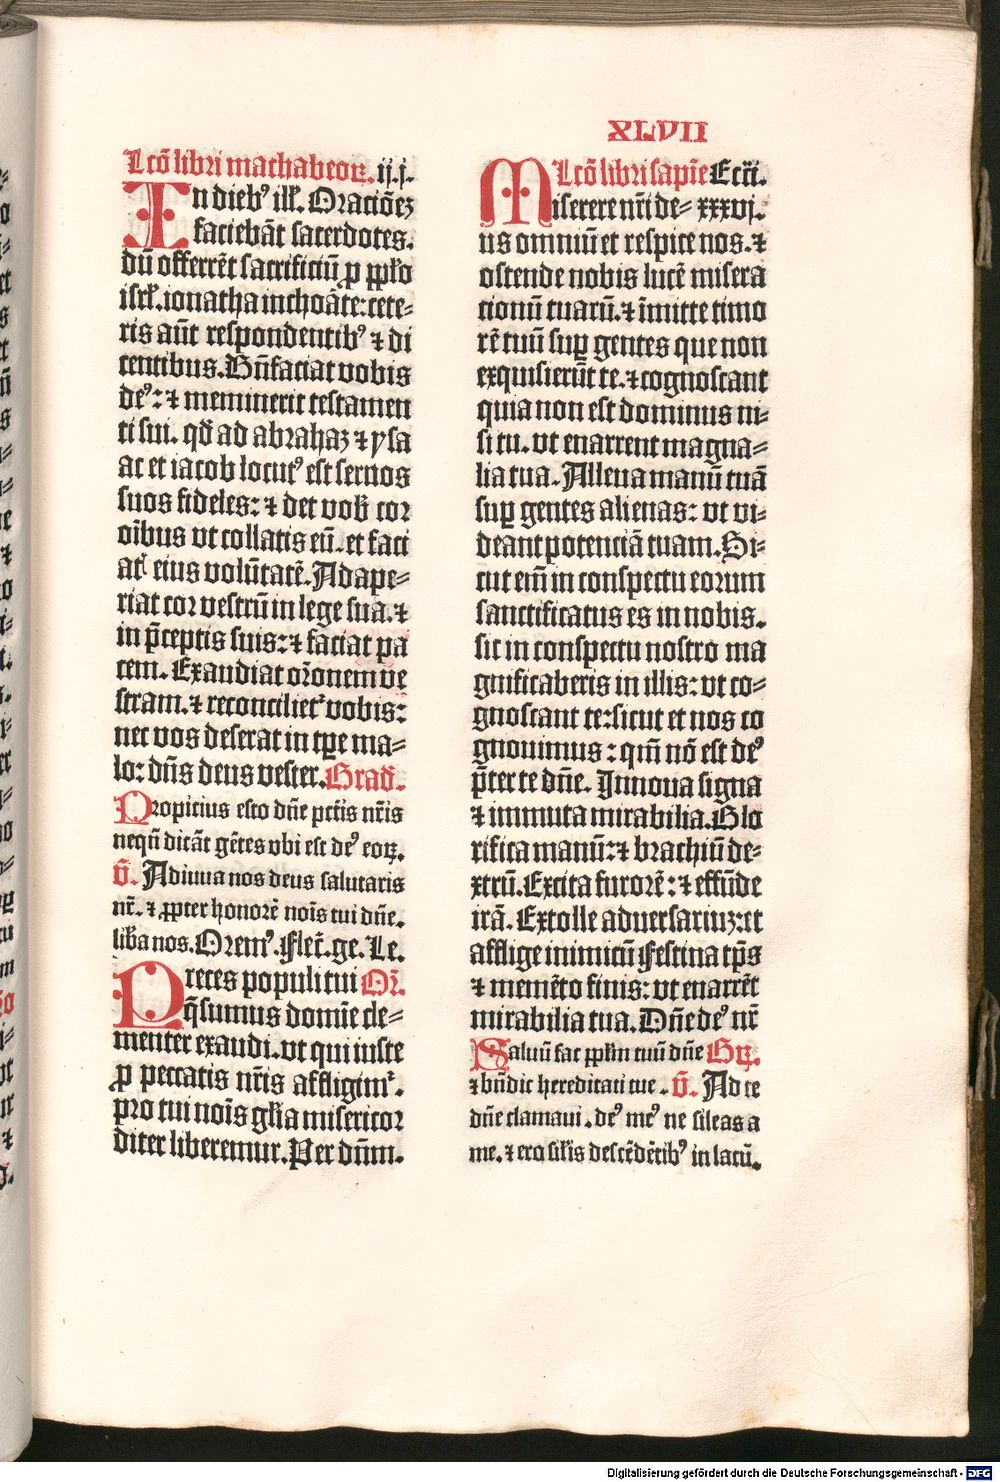 XLVII
Lcõ libri machabeoꝝ. ij.j.
In diebꝰ ill'. Oraciões
faciebãt sacerdotes.
dũ offerrẽt sacrificiũ ꝓ pplo
isrl'. ionatha inchoãte: cete⸗
ris aũt respondentibꝰ ⁊ di
centibus. Bñfaciat vobis
deꝰ: ⁊ meminerit testamen
ti sui. qd̃ ad abrahaz ⁊ ysa
ac et iacob locutꝰ est seruos
suos fideles: ⁊ det vob' cor
oĩbus vt collatis eũ. et faci
atꝭ eius volũtatẽ. Adape⸗
riat cor vestrũ in lege sua. ⁊
in p̃ceptis suis: ⁊ faciat pa
cem. Exaudiat or̃onem ve
stram. ⁊ reconciliet' vobis:
nec vos deserat in tp̃e ma⸗
lo: dñs deus vester. Grad̃.
Propicius esto dñe pctĩs nr̃is
nequñ dicãt gẽtes vbi est deꝰ eoꝝ.
v̄. Adiuua nos deus salutaris
nr̃. ⁊ ꝓpter honorẽ noĩs tui dñe.
lib'a nos. Oremꝰ. Flect̃. ge. Le.
Preces populi tui Or̃.
q̃sumus domĩe cle⸗
menter exaudi. vt qui iuste
ꝓ peccatis nr̃is affligim'.
pro tui noĩs glia misericor
diter liberemur. Per dñm.
Lcõ libri sapiẽ Ecc̃i.
Miserere nr̃i de⸗ xxxvj.
us omniũ et respice nos. ⁊
ostende nobis lucẽ misera
cionũ tuarũ. ⁊ ĩmitte timo
rẽ tuũ suꝑ gentes que non
exquisierũt te. ⁊ cognoscant
quia non est dominus ni⸗
si tu. vt enarrent magna⸗
lia tua. Alleua manũ tuã
suꝑ gentes alienas: vt vi⸗
deant potenciã tuam. Si⸗
cut eñ in conspectu eorum
sanctificatus es in nobis.
sic in conspectu nostro ma
gnificaberis in illis: vt co⸗
gnoscant te: sicut et nos co
gnouimus: qm̃ nõ est deꝰ
p̃ter te dñe. Innoua signa
⁊ immuta mirabilia. Glo
rifica manũ: ⁊ brachiũ de⸗
xtrũ. Excita furorẽ: ⁊ effũde
irã. Extolle aduersariuz: et
afflige inimicũ Festina tp̃s
⁊ memẽto finis: vt enarrẽt
mirabilia tua. Dñe deꝰ nr̃
Saluũ fac pplm tuũ dñe Gꝝ.
⁊ bñdic hereditati tue. v̄. Ad te
dñe clamaui. deꝰ meꝰ ne sileas a
me. ⁊ ero sil'is descẽdẽtibꝰ in lacũ.
Digitalisierung gefördert durch die Deutsche Forschungsgemeinschaft - DFG